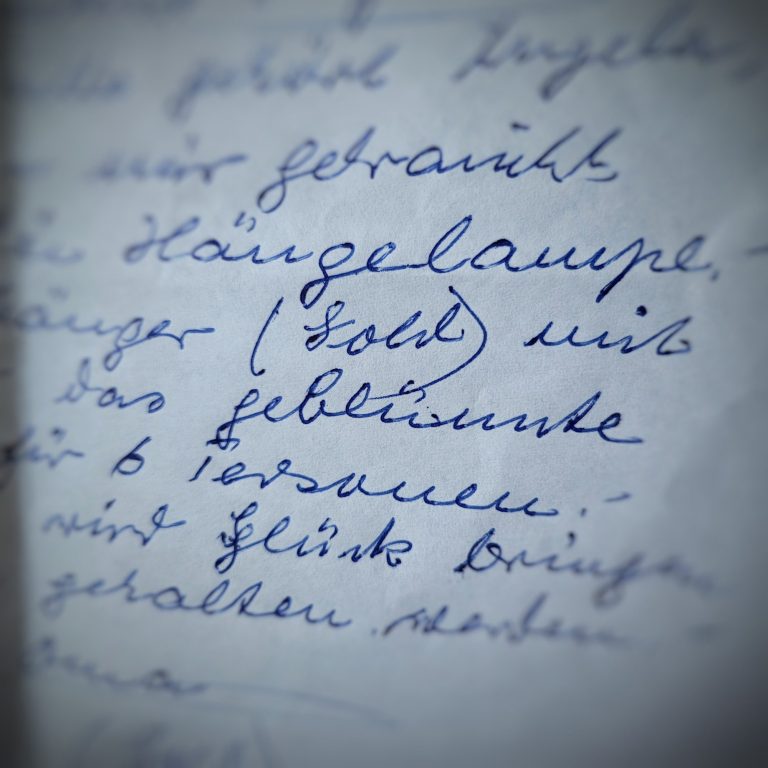 gehört Ingeborg,
mir gekauft
Hängelampe.-
hänger (Gold) mit
das geblümte
für 6 Personen.-
wird Glück bringen
gehalten werden -
Oma